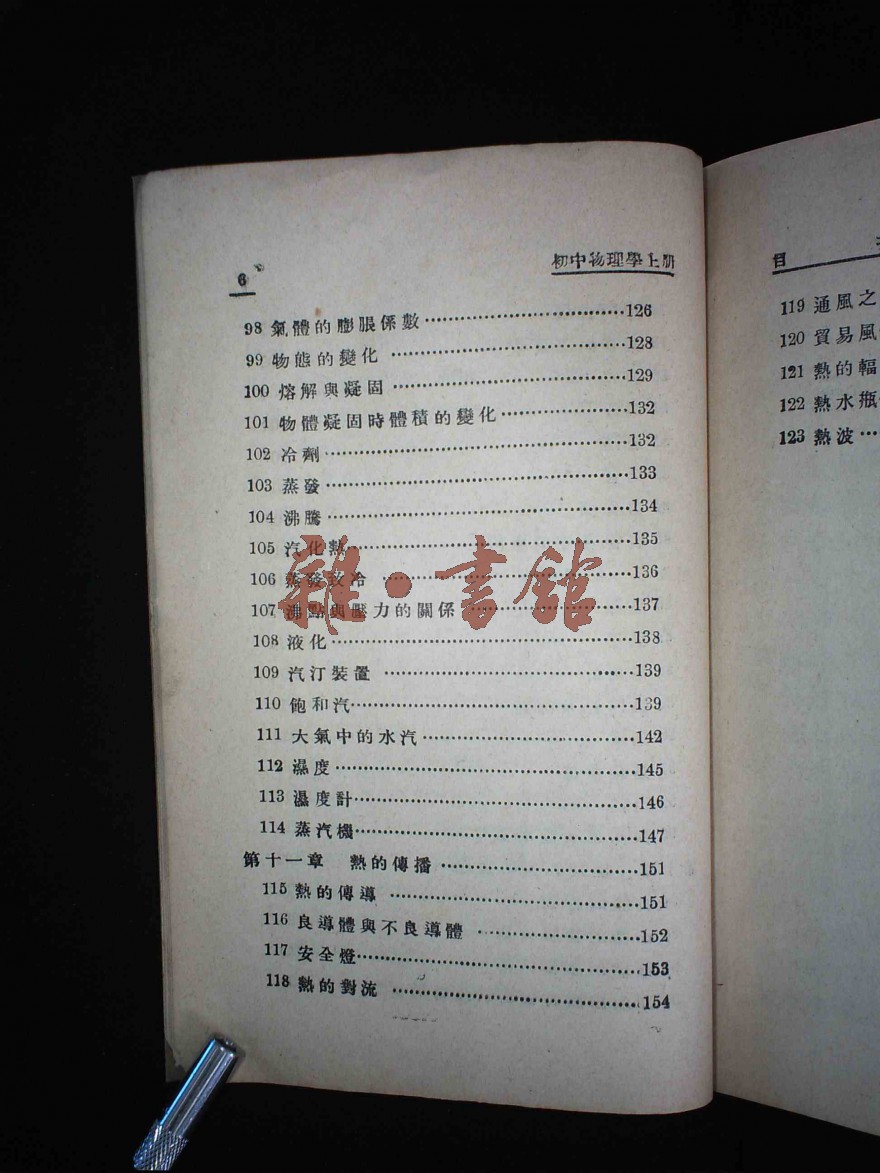 6 初中物理學上册
98 氣體的膨脹係數 126
99 物態的變化 128
100 熔解與凝固 129
101 物體凝固時體積的變化 132
102 冷劑 132
103 蒸發 133
104 沸騰 134
105 汽化熱 135
106 蒸發致冷 136
107 沸點與壓力的關係 137
108 液化 138
109 汽汀裝置 139
110 飽和汽 139
111 大氣中的水汽 142
112 濕度 145
113 濕度計 146
114 蒸汽機 147
第十一章 熱的傳播 151
115 熱的傳導 151
116 良導體與不良導體 152
117 安全燈 153
118 熱的對流 154
雜·書館
目
119 通風之
120 貿易風
121 熱的輻
122 熱水瓶
123 熱波